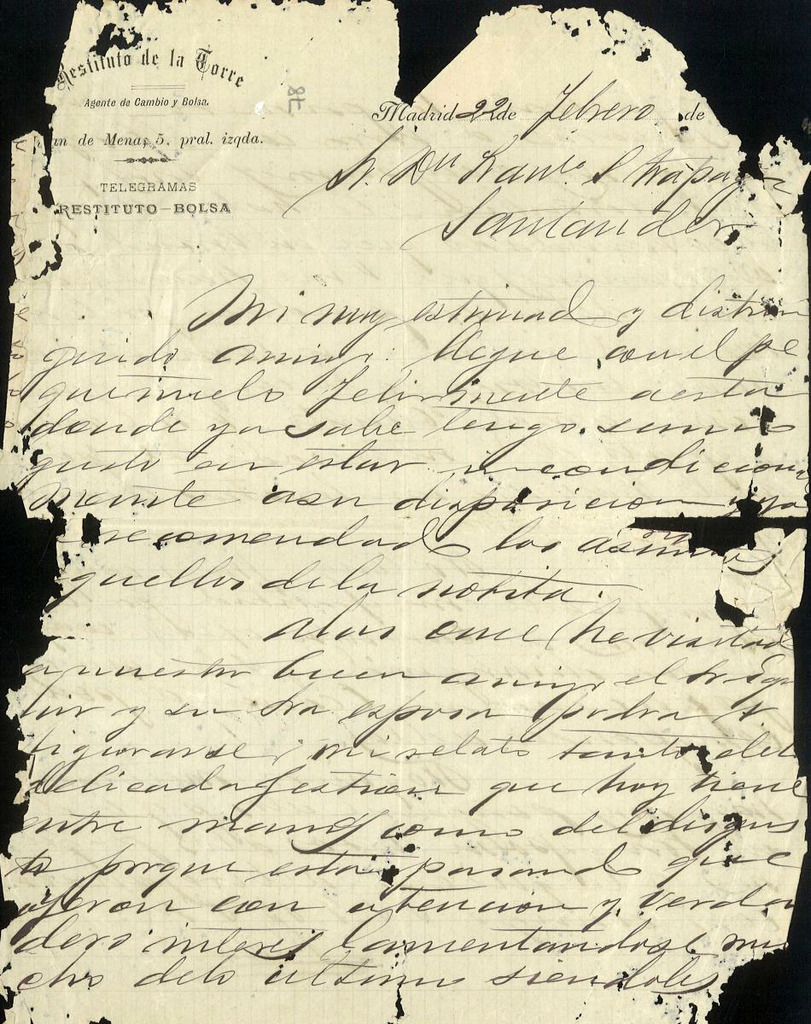 Restituto de la Torre
Agente de Cambio y Bolsa.
an de Mena, 5, pral. izqda.
TELEGRAMAS
RESTITUTO-BOLSA
78
Madrid 22 de Febrero de
Sr. Dn
Santander
Mi muy estimado y distin
guido amigo: llegue con el pe
queñuelo felizmente a esta
donde ya sabe tengo sumo
gusto en estar incondicional
mente a su disposicion y ya
recomendado los asuntos
aquellos de la notita.
Mas que he visitado
a nuestro buen amigo el Sr
y su Sra esposa podra V
figurarse mi relato tanto de la
delicada gestion que hoy tiene
entre manos como del disgus
to porque esta pasando que
oyeron con atencion y verda
dero interes lamentandose mu
cho de lo ultimo siendoles